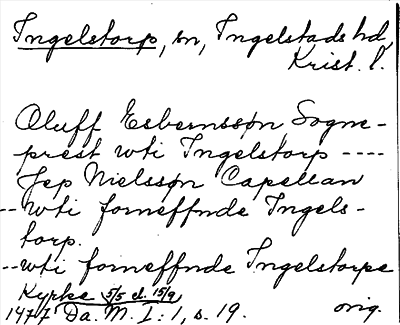 Ingelstorp, sn, Ingelstads hd,
Krist. l.
Oluff Esbernssøn Sogne-
prest wti Ingelstorp ----
Jep Nielssøn Capellan
--wti forneffnde Ingels-
torp.
--wti forneffnde Ingelstorpe
Kypke 5/5 el. 15/9
1477 Da. M. I: 1, s. 19. orig.